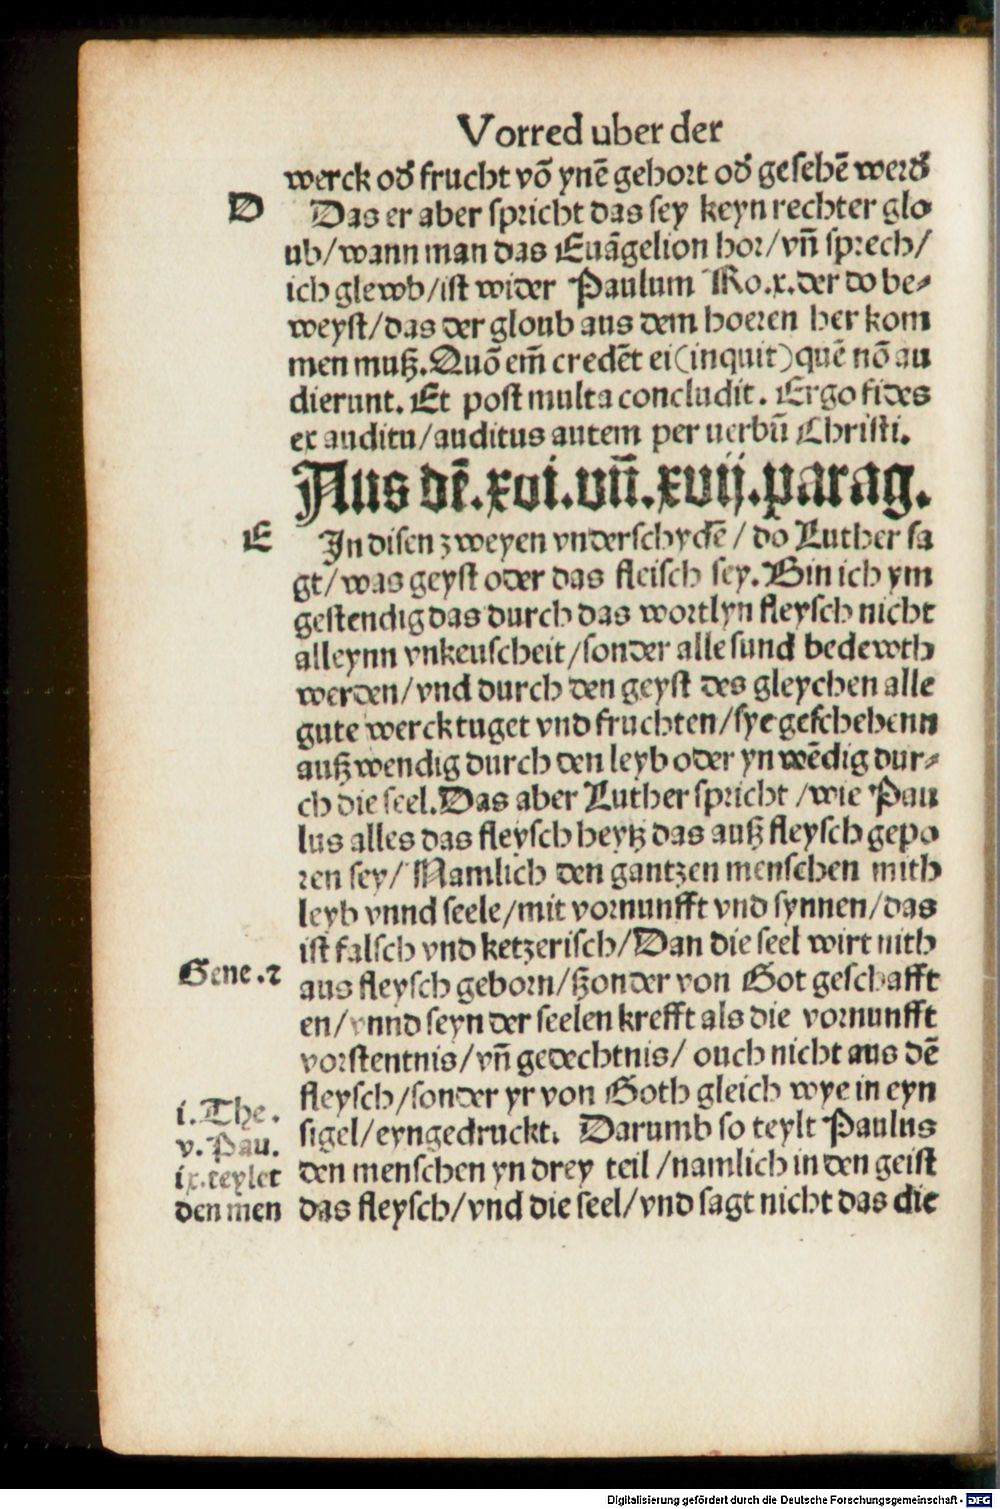 Vorred uber der
werck od' frucht võ ynẽ gehort od' gesehẽ werd'
D
Das er aber spricht das sey keyn rechter glo
ub/wann man das Euãgelion hor/vñ sprech/
ich glewb/ist wider Paulum Ro.x.der do be⸗
weyst/das der gloub aus dem hoeren her kom
men muß.Quõ em̃ credẽt ei(inquit)quẽ nõ au
dierunt. Et post multa concludit. Ergo fides
ex auditu/auditus autem per uerbũ Christi.
Aus dẽ.xvi.vñ.xvij.parag.
E
In disen zweyen vnderschydẽ/do Luther sa
gt/was geyst oder das fleisch sey.Bin ich ym
gestendig das durch das wortlyn fleysch nicht
alleynn vnkeuscheit/sonder alle sund bedewth
werden/vnd durch den geyst des gleychen alle
gute werck tuget vnd fruchten/sye geschehenn
außwendig durch den leyb oder yn wẽdig dur⸗
ch die seel.Das aber Luther spricht/wie Pau
lus alles das fleysch heytz das auß fleysch gepo
ren sey/Namlich den gantzen menschen mith
leyb vnnd seele/mit vornunfft vnd synnen/das
ist falsch vnd ketzerisch/Dan die seel wirt nith
Gene.2
aus fleysch geborn/ßonder von Got geschafft
en/vnnd seyn der seelen krefft als die vornunfft
vorstentnis/vñ gedechtnis/ ouch nicht aus dẽ
fleysch/sonder yr von Goth gleich wye in eyn
i.The.
v.Pau.
ix.teylet
den men
sigel/eyngedruckt. Darumb so teylt Paulus
den menschen yn drey teil/namlich in den geist
das fleysch/vnd die seel/vnd sagt nicht das die
Digitalisierung gefördert durch die Deutsche Forschungsgemeinschaft - DFG